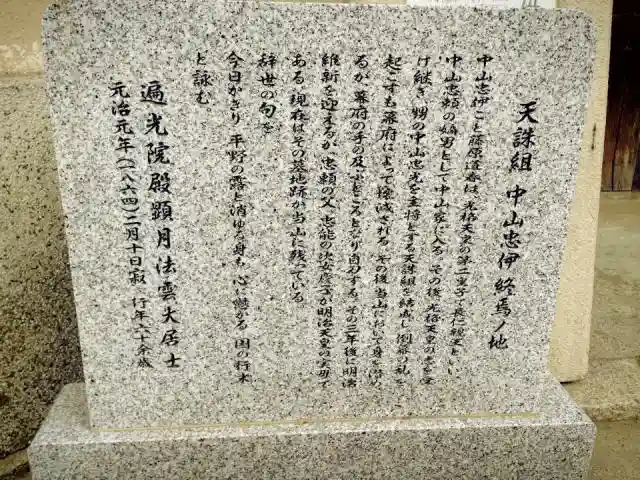 天誅組 中山忠伊 終焉ノ地
中山忠伊こと藤原道春は、光格天皇の第二皇子・長仁親王といい
中山忠頼の嫡男として中山家に入る。その後、光格天皇の志を受
け継ぎ、甥の中山忠光を主将とする天誅組を結成し倒幕の乱を
起こすも幕府によって殲滅される。その後当山において身を潜め
るが、幕府の手の及ぶところとなり自刃する。その三年後に明治
維新を迎えるが、忠頼の父忠能の次女慶子が明治天皇の生母で
ある。現在はその墓地跡が当山に残っている。
辞世の句を
今日かぎり 平野の露と消ゆる身も 心に懸かる 国の行末
と詠む。
遍光院殿顕月法雲大居士
元治元年(一八六四)二月十日寂 行年六十余歳